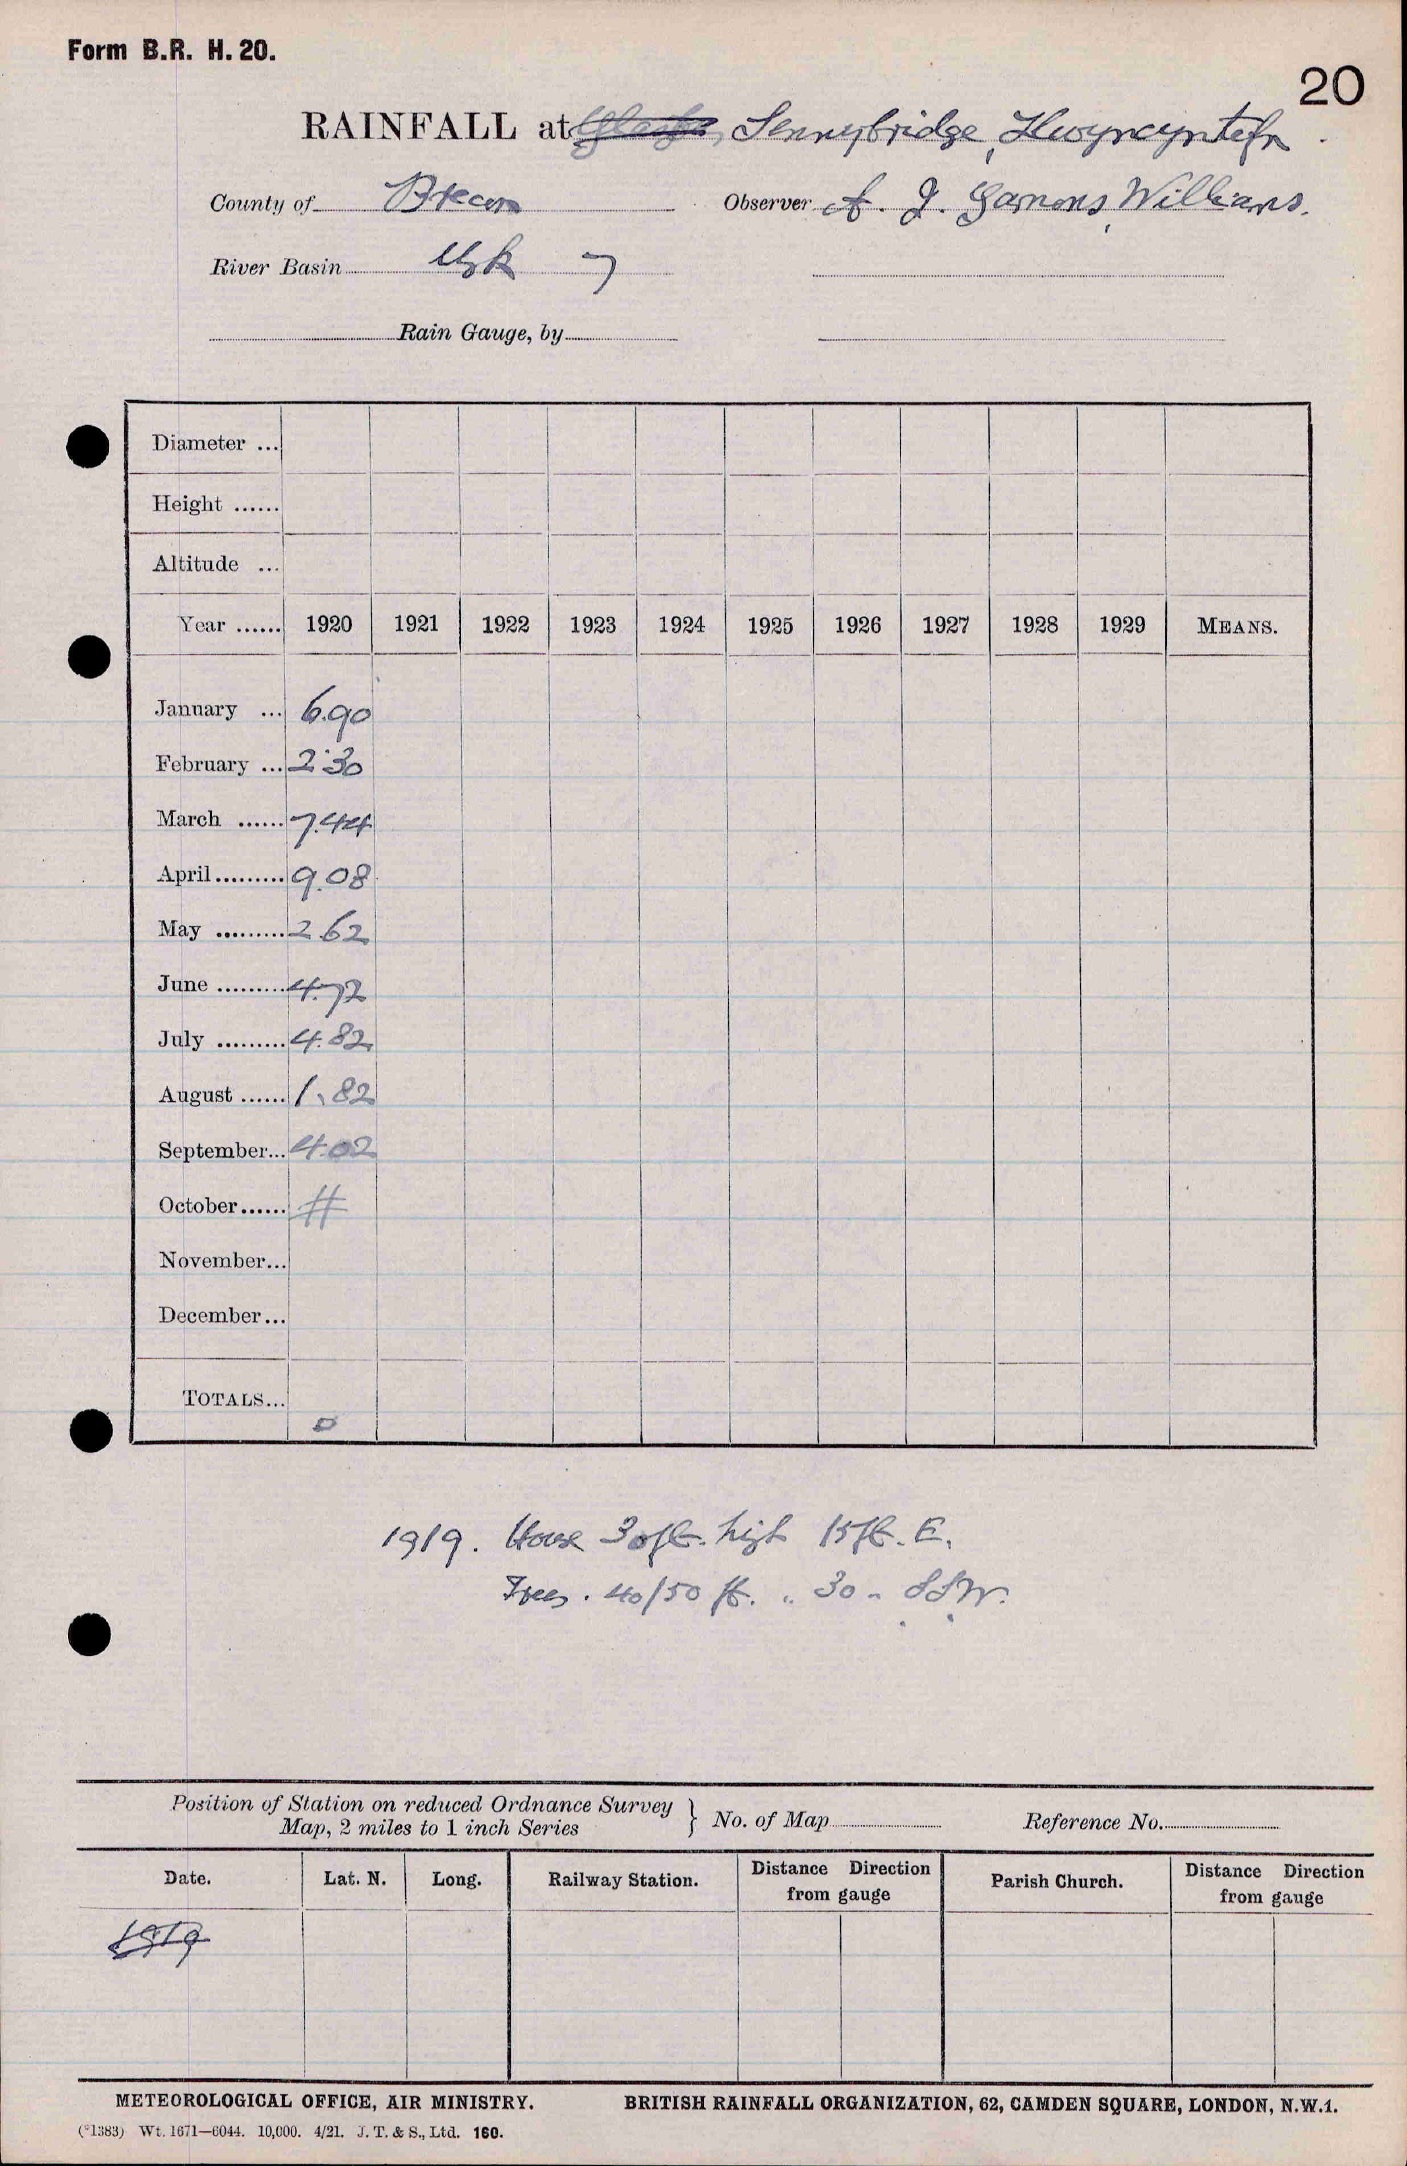 Form B.R. H. 20.
20
RAINFALL at Sennybridge, Llwyncyntefn.
County of Brecon Observer A. J. Garnons Williams.
River Basin Usk 7
Rain Gauge, by
Diameter ...
Height ......
Altitude ...
Year ...... 1920 1921 1922 1923 1924 1925 1926 1927 1928 1929 MEANS.
January ... 6.90
February ... 2.30
March ...... 7.44
April ......... 9.08
May ......... 2.62
June ......... 4.72
July ......... 4.82
August ...... 1.82
September... 4.02
October...... #
November...
December...
TOTALS...
1919. House 30 ft. high 15 ft. E.
Trees. 40/50 ft. " 30 " SSW.
Position of Station on reduced Ordnance Survey
Map, 2 miles to 1 inch Series } No. of Map Reference No.
Date. Lat. N. Long. Railway Station. Distance Direction from gauge Parish Church. Distance Direction from gauge
1919
METEOROLOGICAL OFFICE, AIR MINISTRY. BRITISH RAINFALL ORGANIZATION, 62, CAMDEN SQUARE, LONDON, N.W.1.
(*1383) Wt. 1671—6044. 10,000. 4/21. J. T. & S., Ltd. 160.